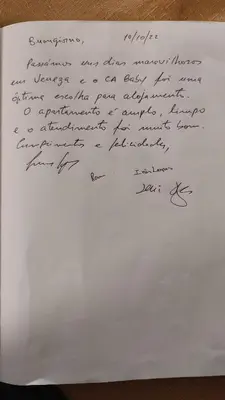 Buongiorno, 10/10/22
Passámos uns dias maravilhosos
em Veneza e o CA Baby foi uma
óptima escolha para alojamento.
O apartamento é amplo, limpo
e o atendimento foi muito bom.
Cumprimentos e felicidades,